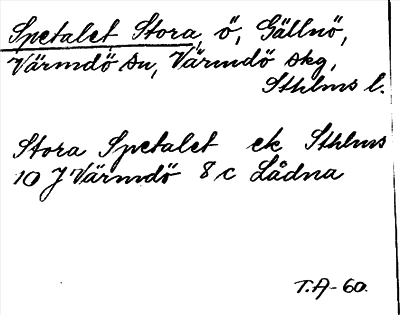 Spetalet, Stora, ö, Gällnö,
Värmdö sn, Värmdö skg,
Sthlms l.
Stora Spetalet ek Sthlms
10 J Värmdö 8 c Lådna
T.A-60.